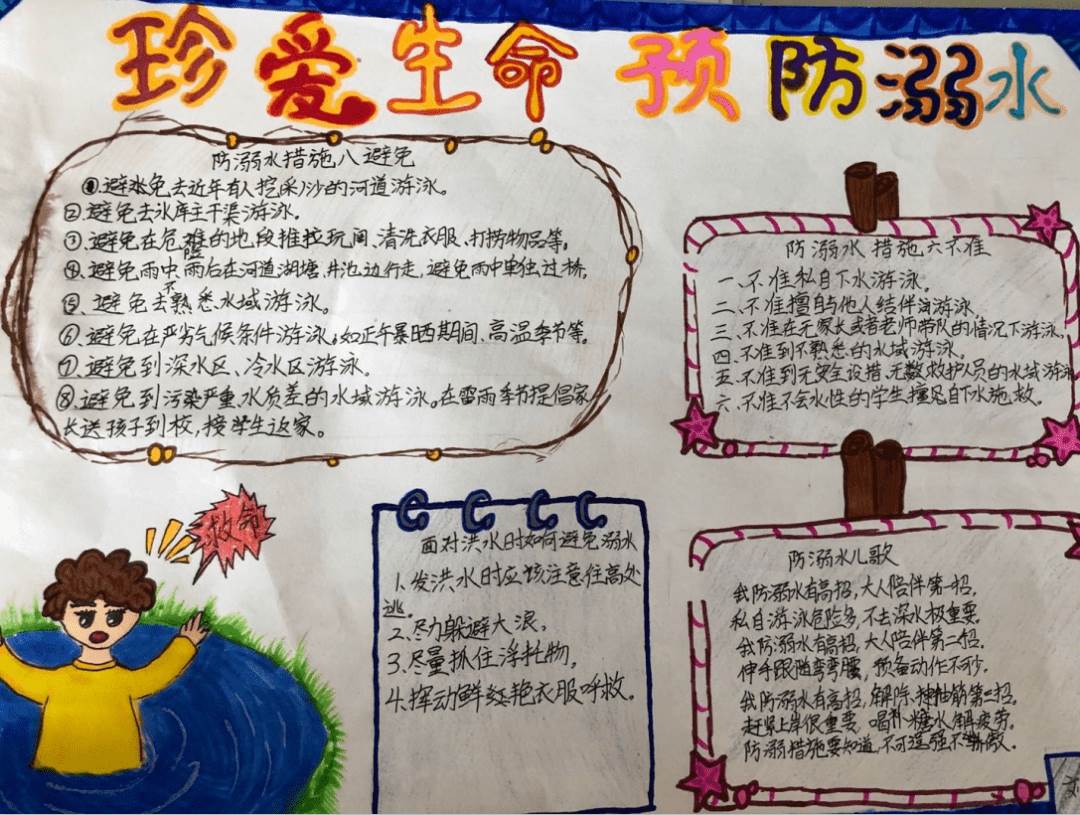 珍爱生命 预防溺水
防溺水措施八避免
①.避免去近年有人挖采沙的河道游泳。
②.避免去水库主干渠游泳。
③.避免在危险的地段推拉玩闹、清洗衣服、打捞物品等。
④.避免雨中、雨后在河道湖塘、井池边行走,避免雨中单独过桥。
⑤.避免去不熟悉水域游泳。
⑥.避免在严劣气候条件游泳,如正午暴晒期间、高温季节等。
⑦.避免到深水区、冷水区游泳。
⑧.避免到污染严重、水质差的水域游泳。在雷雨季节提倡家
长送孩子到校,接学生返家。
防溺水措施六不准
一、不准私自下水游泳。
二、不准擅自与他人结伴游泳。
三、不准在无家长或者老师带队的情况下游泳。
四、不准到不熟悉的水域游泳。
五、不准到无安全设措、无数救护人员的水域游泳
六、不准不会水性的学生擅自下水施救。
救命
面对洪水时如何避免溺水
1.发洪水时应该注意往高处
逃。
2.尽力躲避大浪。
3.尽量抓住浮托物,
4.挥动鲜红艳衣服呼救。
防溺水儿歌
我防溺水有高招,大人陪伴第一招。
私自游泳危险多,不去深水极重要。
我防溺水有高招,大人陪伴第二招.
伸手踢腿弯弯腰,预备动作不可少。
我防溺水有高招,解除抽筋第三招
赶紧上岸很重要,喝补糖水解疲劳。
防溺措施要知道,不可逞强不骄傲.